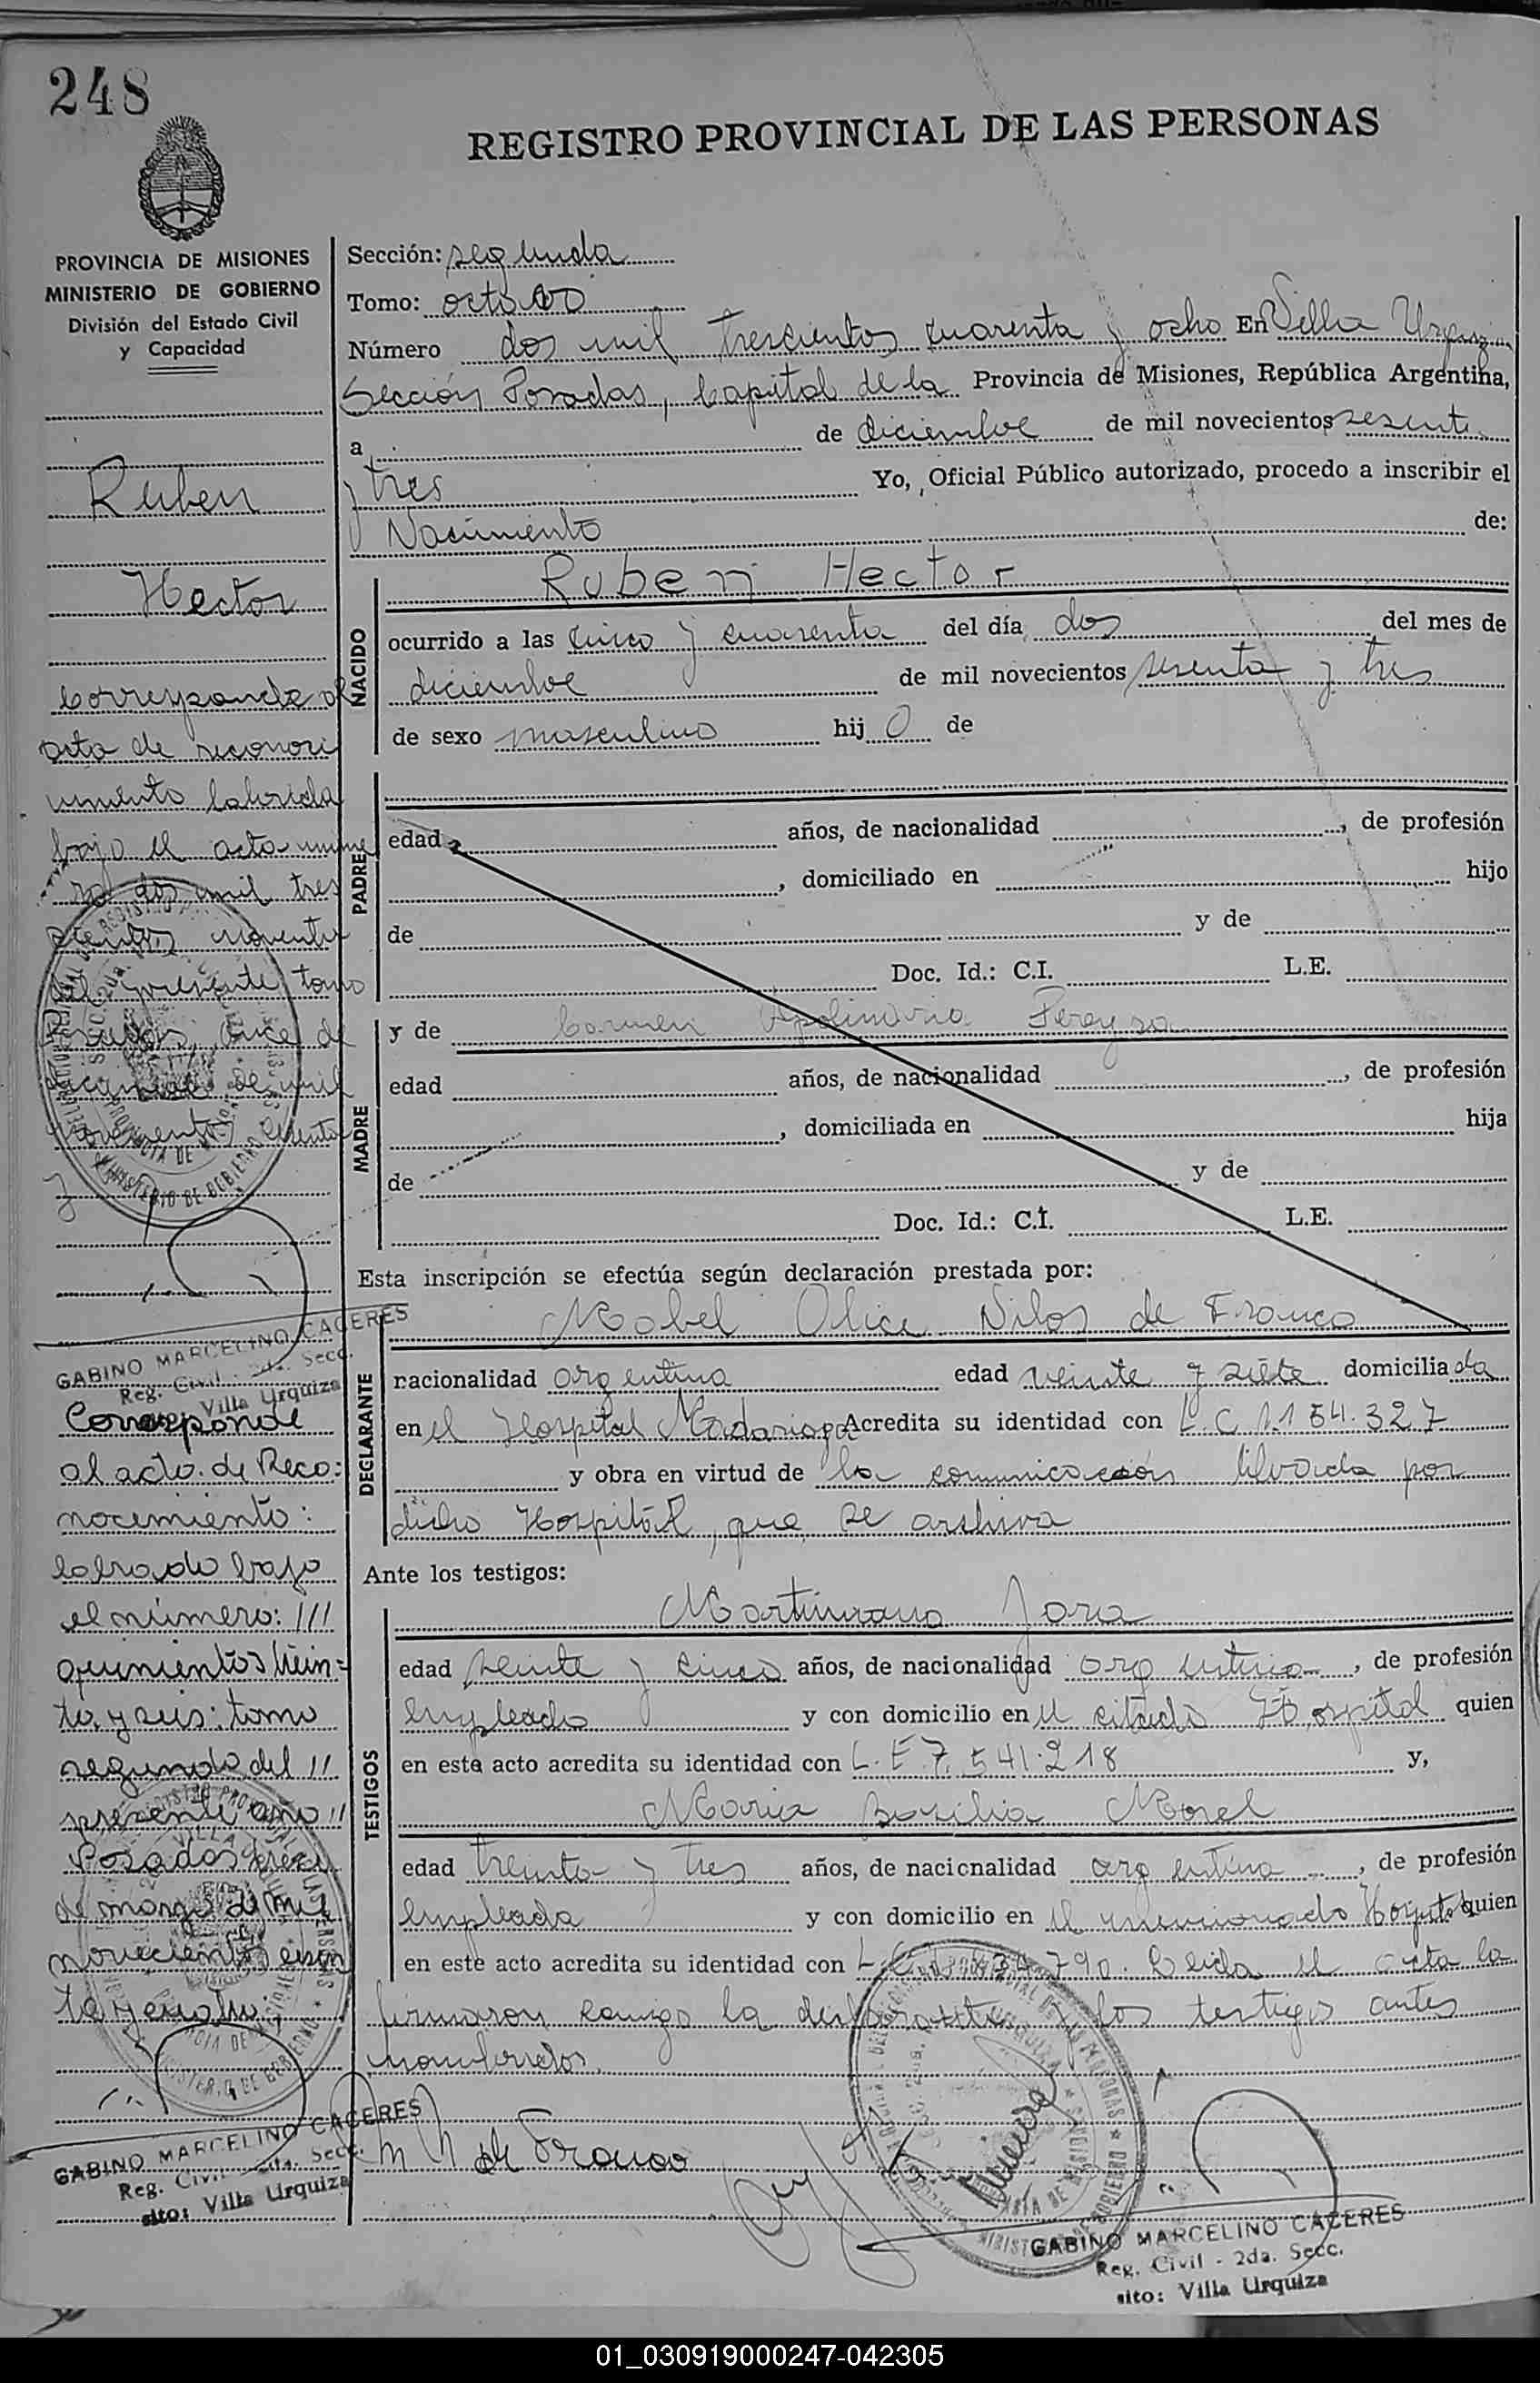 248
REGISTRO PROVINCIAL DE LAS PERSONAS
PROVINCIA DE MISIONES
MINISTERIO DE GOBIERNO
División del Estado Civil
y Capacidad
Ruben
Hector
Corresponde al
acta de reconoci
miento labrida
bajo el acta núme
ro dos mil tres
cientos noventa
del presente tomo
GABINO MARCELINO CACERES
Reg. Civil - 2da. Secc.
Villa Urquiza
Corresponde
al acto. de Reco:
nocimiento:
labrado bajo
el número: ///
quinientos vein=
te, y seis: tomo
segundo del //
presente año //
Posadas
de marzo de mil
novecientos
GABINO MARCELINO CACERES
Reg. Civil - 2da. Secc.
sito: Villa Urquiza
Sección: segunda
Tomo: octavo
Número dos mil trescientos cuarenta y ocho En Villa Urquiza
Sección Posadas, Capital de la Provincia de Misiones, República Argentina,
a de diciembre de mil novecientos sesenta
y tres Yo, Oficial Público autorizado, procedo a inscribir el
Nacimiento de:
NACIDO
Ruben Hector
ocurrido a las cinco y cuarenta del día dos del mes de
diciembre de mil novecientos sesenta y tres
de sexo masculino hij o de
PADRE
edad años, de nacionalidad , de profesión
, domiciliado en hijo
de y de
Doc. Id.: C.I. L.E.
MADRE
y de Carmen Apolinaria Pereyra
edad años, de nacionalidad , de profesión
, domiciliada en hija
de y de
Doc. Id.: C.I. L.E.
Esta inscripción se efectúa según declaración prestada por:
DECLARANTE
Mabel Alice Nilos de Franco
racionalidad argentina edad veinte y siete domicilia da
en el Hospital Madariaga Acredita su identidad con L.C 1.154.327
y obra en virtud de la comunicación librada por
dicho Hospital, que se archiva
Ante los testigos:
TESTIGOS
Martiniano Jara
edad veinte y cinco años, de nacionalidad argentina , de profesión
empleado y con domicilio en el citado Hospital quien
en este acto acredita su identidad con L.E 7.541.218 y,
Maria Basilia Morel
edad treinta y tres años, de nacicnalidad argentina , de profesión
empleada y con domicilio en el mencionado Hospital quien
en este acto acredita su identidad con 790. Leida el acta la
firmaron conmigo la declarante y los testigos antes
nombrados.
M N de Franco
GABINO MARCELINO CACERES
Reg. Civil - 2da. Secc.
sito: Villa Urquiza
01_030919000247-042305